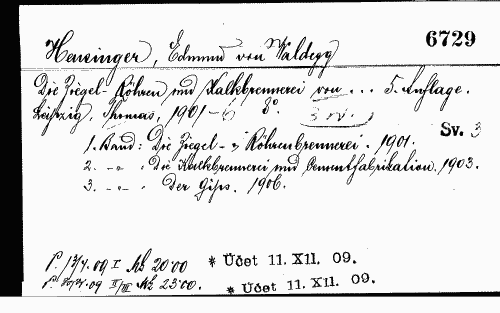 6729
Heusinger, Edmund von Waldegg
Die Ziegel- Röhren und Kalkbrennerei von ... 5. Auflage.
Leipzig, Thomas, 1901-6 8°. 3 sv.
Sv. 3
1. Band: Die Ziegel- & Röhrenbrennerei. 1901.
2. -"- : Die Kalkbrennerei und Cementfabrikation. 1903.
3. -"- : Der Gips. 1906.
09 I Mk 20·00 * Účet 11. XII. 09.
09 II/III Mk 23·00. * Účet 11. XII. 09.